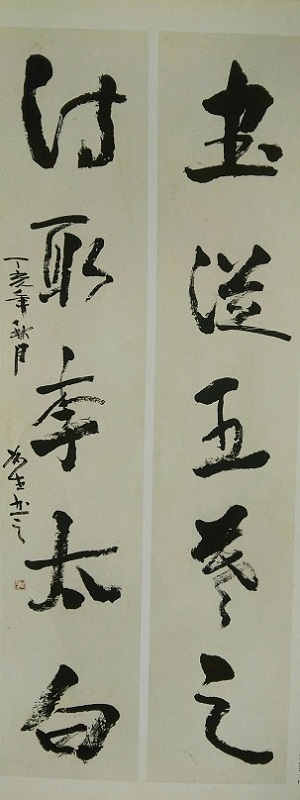 書從王羲之
詩取李太白
丁亥年秋月
書之